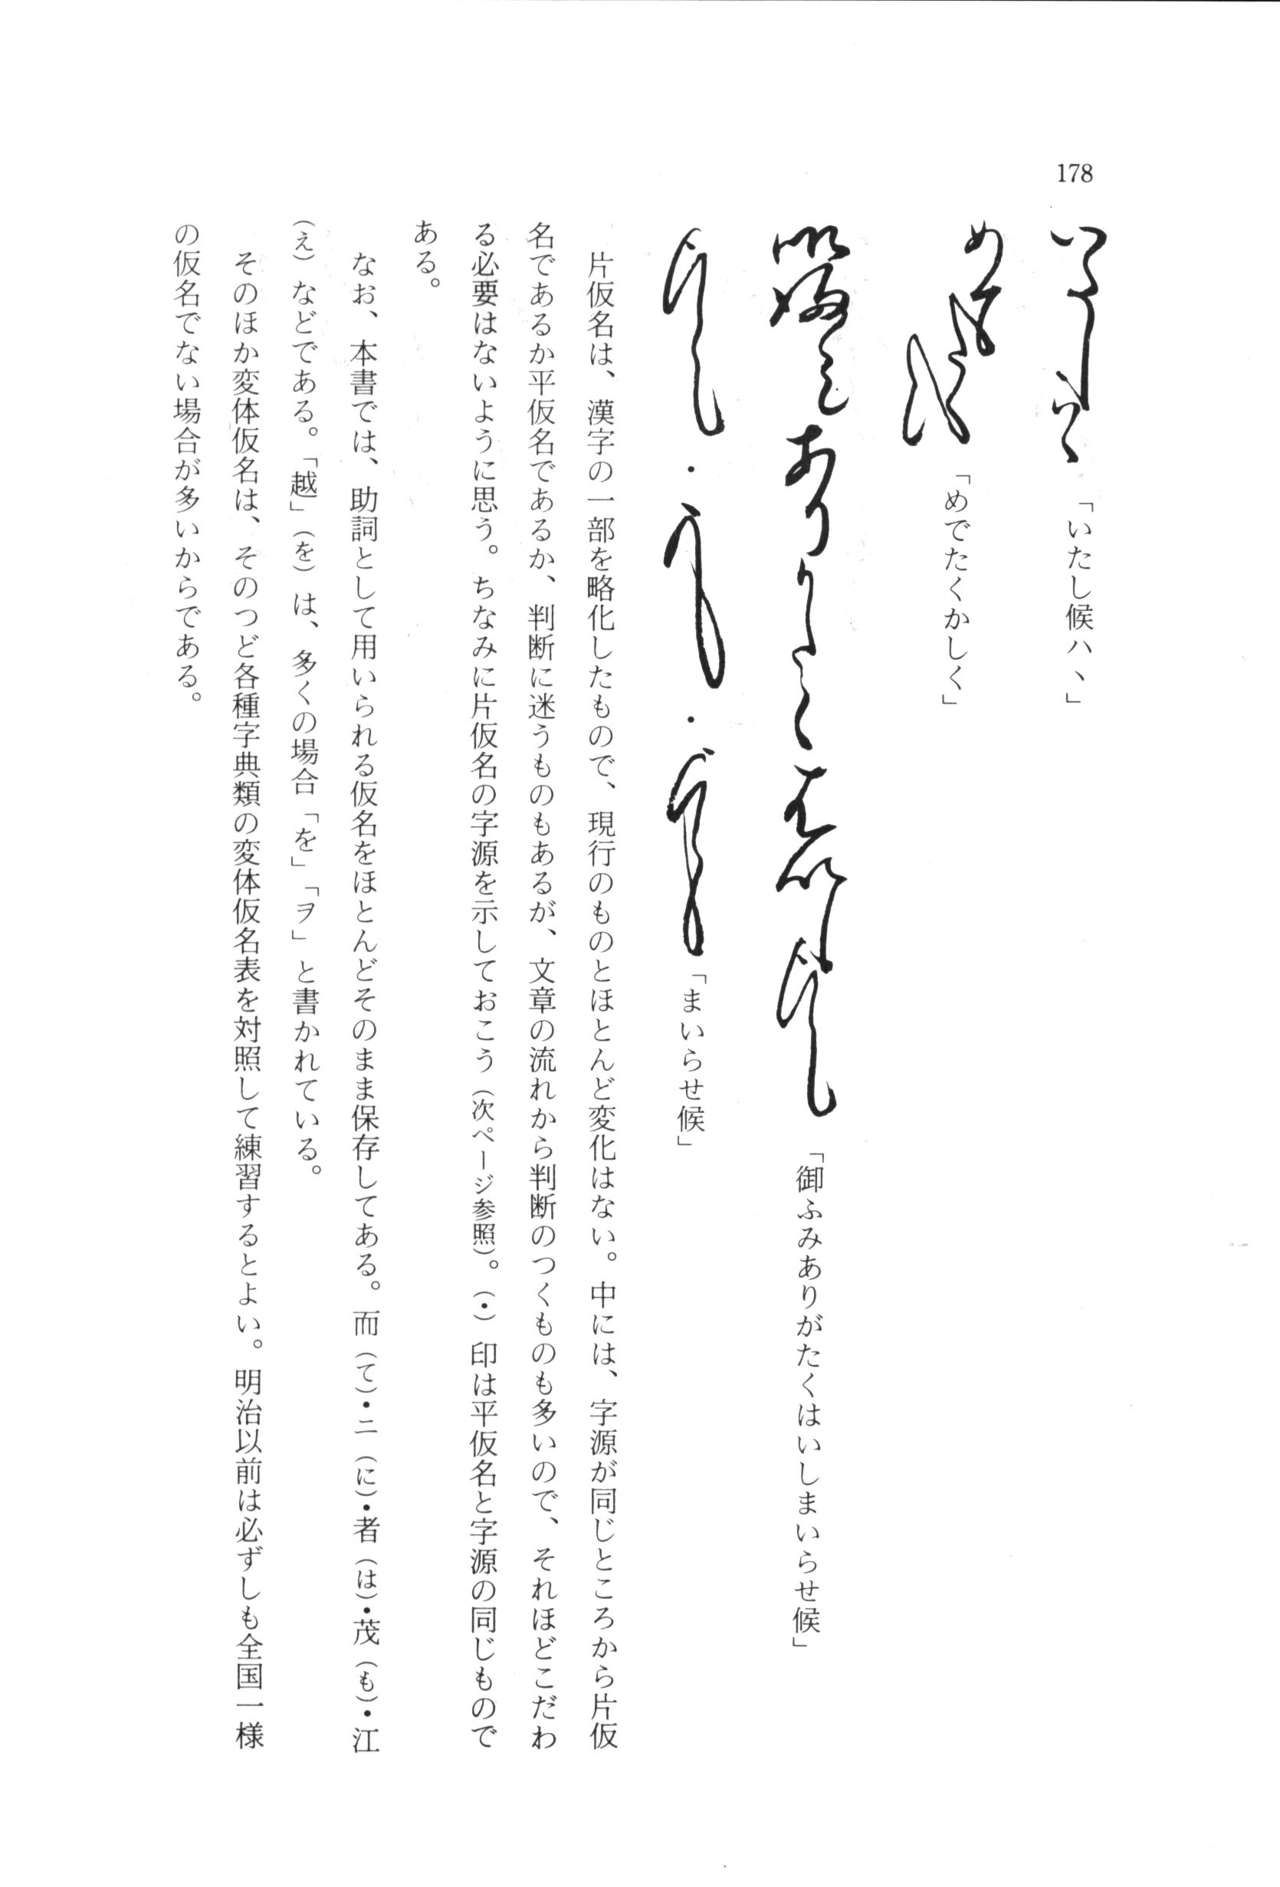 178
「いたし候ハヽ」
「めでたくかしく」
「御ふみありがたくはいしまいらせ候」
・ ・ 「まいらせ候」
片仮名は、漢字の一部を略化したもので、現行のものとほとんど変化はない。中には、字源が同じところから片仮
名であるか平仮名であるか、判断に迷うものもあるが、文章の流れから判断のつくものも多いので、それほどこだわ
る必要はないように思う。ちなみに片仮名の字源を示しておこう(次ページ参照)。(・)印は平仮名と字源の同じもので
ある。
なお、本書では、助詞として用いられる仮名をほとんどそのまま保存してある。而(て)・ニ(に)・者(は)・茂(も)・江
(え)などである。「越」(を)は、多くの場合「を」「ヲ」と書かれている。
そのほか変体仮名は、そのつど各種字典類の変体仮名表を対照して練習するとよい。明治以前は必ずしも全国一様
の仮名でない場合が多いからである。